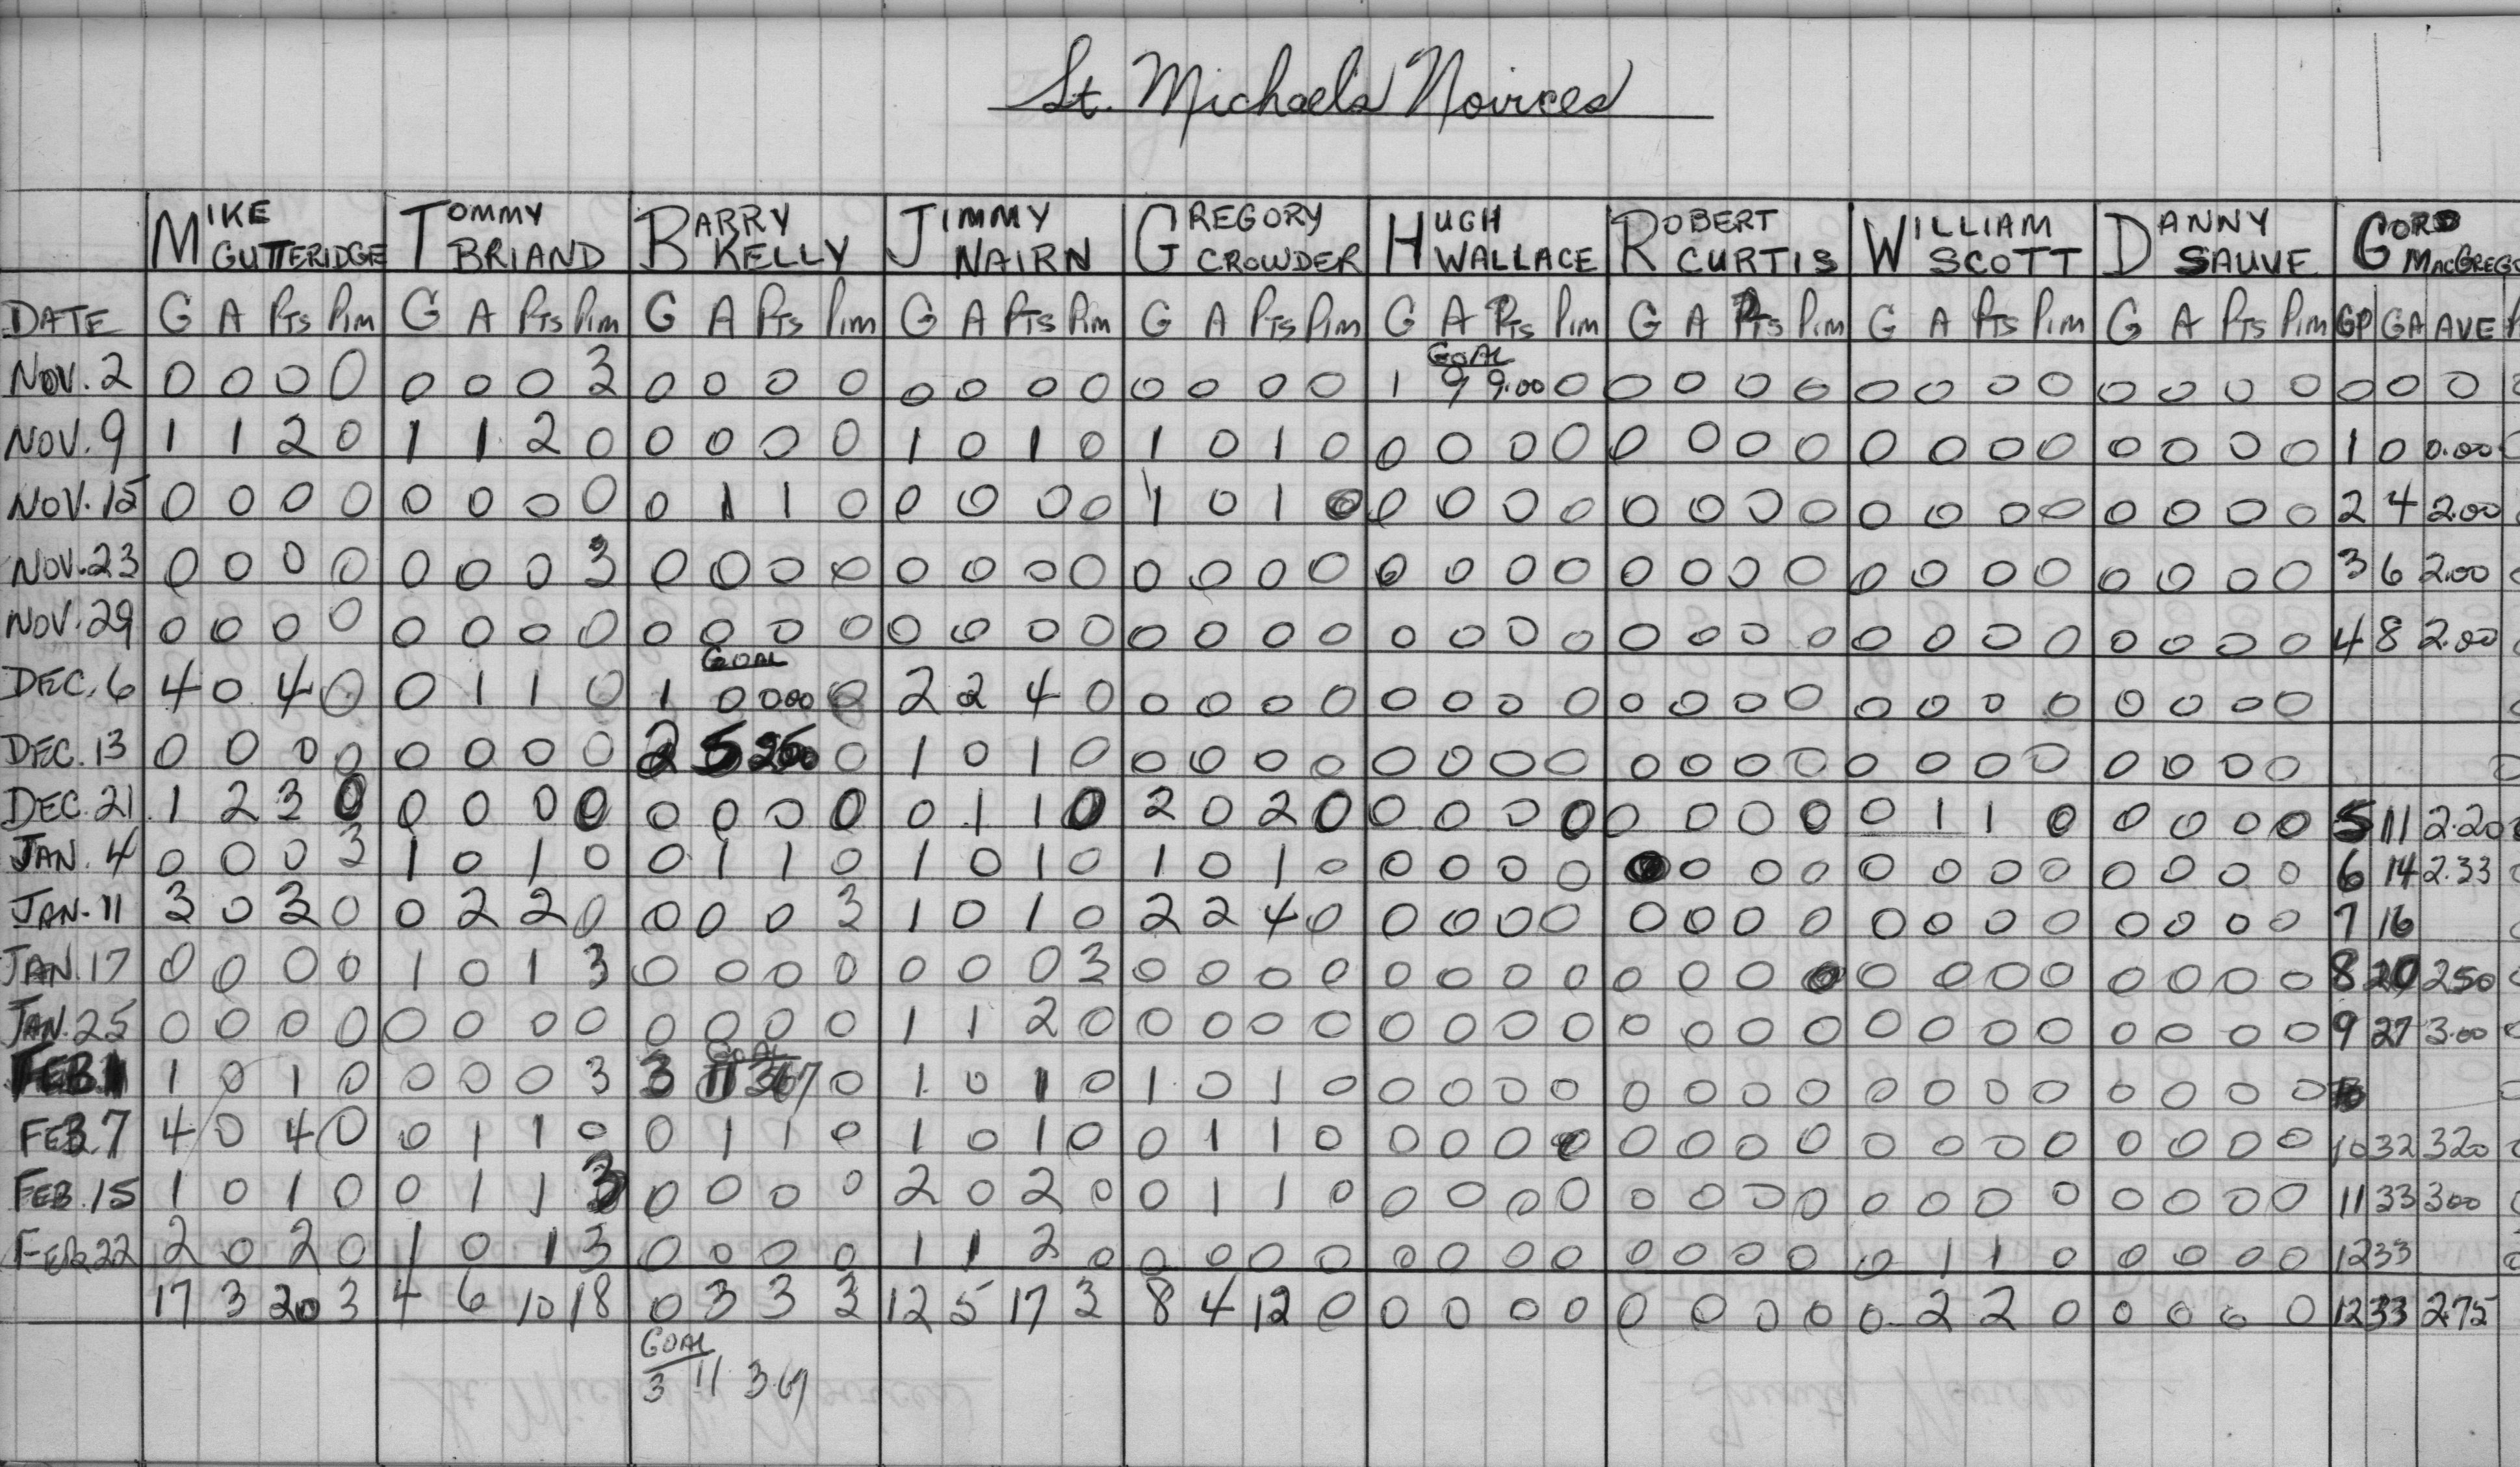 St. Michaels Novices
MIKE GUTTERIDGE TOMMY BRIAND BARRY KELLY JIMMY NAIRN GREGORY CROWDER HUGH WALLACE ROBERT CURTIS WILLIAM SCOTT DANNY SAUVE GORD MACGREGO
DATE G A PTS PIM G A PTS PIM G A PTS PIM G A PTS PIM G A PTS PIM G A PTS PIM G A PTS PIM G A PTS PIM G A PTS PIM GP GA AVE
GOAL
NOV. 2 0 0 0 0 0 0 0 3 0 0 0 0 0 0 0 0 0 0 0 0 1 9 9.00 0 0 0 0 0 0 0 0 0 0 0 0 0 0 0 0
NOV. 9 1 1 2 0 1 1 2 0 0 0 0 0 1 0 1 0 1 0 1 0 0 0 0 0 0 0 0 0 0 0 0 0 0 0 0 0 1 0 0.00
NOV. 15 0 0 0 0 0 0 0 0 0 1 1 0 0 0 0 0 1 0 1 0 0 0 0 0 0 0 0 0 0 0 0 0 0 0 0 0 2 4 2.00
NOV. 23 0 0 0 0 0 0 0 3 0 0 0 0 0 0 0 0 0 0 0 0 0 0 0 0 0 0 0 0 0 0 0 0 0 0 0 0 3 6 2.00
NOV. 29 0 0 0 0 0 0 0 0 0 0 0 0 0 0 0 0 0 0 0 0 0 0 0 0 0 0 0 0 0 0 0 0 0 0 0 0 4 8 2.00
GOAL
DEC. 6 4 0 4 0 0 1 1 0 1 0 0.00 0 2 2 4 0 0 0 0 0 0 0 0 0 0 0 0 0 0 0 0 0 0 0 0 0
DEC. 13 0 0 0 0 0 0 0 0 2 5 250 0 1 0 1 0 0 0 0 0 0 0 0 0 0 0 0 0 0 0 0 0 0 0 0 0
DEC. 21 1 2 3 0 0 0 0 0 0 0 0 0 0 1 1 0 2 0 2 0 0 0 0 0 0 0 0 0 0 1 1 0 0 0 0 0 5 11 2.20
JAN. 4 0 0 0 3 1 0 1 0 0 1 1 0 1 0 1 0 1 0 1 0 0 0 0 0 0 0 0 0 0 0 0 0 0 0 0 0 6 14 2.33
JAN. 11 3 0 3 0 0 2 2 0 0 0 0 3 1 0 1 0 2 2 4 0 0 0 0 0 0 0 0 0 0 0 0 0 0 0 0 0 7 16
JAN. 17 0 0 0 0 1 0 1 3 0 0 0 0 0 0 0 3 0 0 0 0 0 0 0 0 0 0 0 0 0 0 0 0 0 0 0 0 8 20 250
JAN. 25 0 0 0 0 0 0 0 0 0 0 0 0 1 1 2 0 0 0 0 0 0 0 0 0 0 0 0 0 0 0 0 0 0 0 0 0 9 27 3.00
GOAL
FEB. 1 1 0 1 0 0 0 0 3 3 11 367 0 1 0 1 0 1 0 1 0 0 0 0 0 0 0 0 0 0 0 0 0 0 0 0 0
FEB. 7 4 0 4 0 0 1 1 0 0 1 1 0 1 0 1 0 0 1 1 0 0 0 0 0 0 0 0 0 0 0 0 0 0 0 0 0 10 32 320
FEB. 15 1 0 1 0 0 1 1 3 0 0 0 0 2 0 2 0 0 1 1 0 0 0 0 0 0 0 0 0 0 0 0 0 0 0 0 0 11 33 300
FEB. 22 2 0 2 0 1 0 1 3 0 0 0 0 1 1 2 0 0 0 0 0 0 0 0 0 0 0 0 0 0 1 1 0 0 0 0 0 12 33
17 3 20 3 4 6 10 18 0 3 3 3 12 5 17 3 8 4 12 0 0 0 0 0 0 0 0 0 0 2 2 0 0 0 0 0 12 33 2.75
GOAL
3 11 3.67